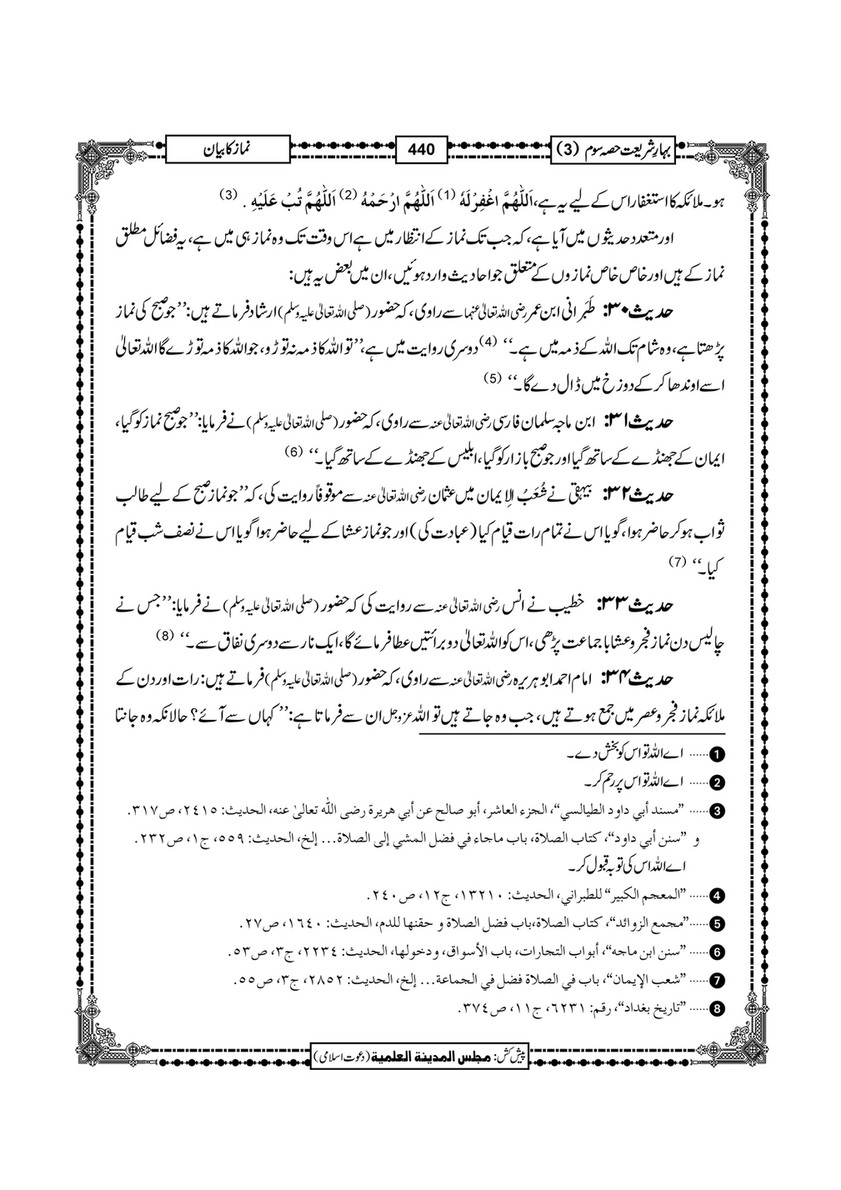 بہارِشریعت حصہ سوم (3)
440
نماز کا بیان
ہو۔ ملائکہ کا استغفار اس کے لیے یہ ہے، اَللّٰهُمَّ اغْفِرْلَهٗ (1) اَللّٰهُمَّ ارْحَمْهُ (2) اَللّٰهُمَّ تُبْ عَلَيْهِ . (3)
اور متعدد حدیثوں میں آیا ہے، کہ جب تک نماز کے انتظار میں ہے اس وقت تک وہ نماز ہی میں ہے، یہ فضائل مطلق
نماز کے ہیں اور خاص خاص نمازوں کے متعلق جو احادیث وارد ہوئیں، ان میں بعض یہ ہیں:
حدیث ۳۰: طَبَرانی ابن عمر رضی اللہ تعالیٰ عنہما سے راوی، کہ حضور (صلی اللہ تعالیٰ علیہ وسلم) ارشاد فرماتے ہیں: ’’جو صبح کی نماز
پڑھتا ہے، وہ شام تک اللہ کے ذمہ میں ہے۔‘‘ (4) دوسری روایت میں ہے، ’’تو اللہ کا ذمہ نہ توڑو، جو اللہ کا ذمہ توڑے گا اللہ تعالیٰ
اسے اوندھا کر کے دوزخ میں ڈال دے گا۔‘‘ (5)
حدیث ۳۱: ابن ماجہ سلمان فارسی رضی اللہ تعالیٰ عنہ سے راوی، کہ حضور (صلی اللہ تعالیٰ علیہ وسلم) نے فرمایا: ’’جو صبح نماز کو گیا،
ایمان کے جھنڈے کے ساتھ گیا اور جو صبح بازار کو گیا، ابلیس کے جھنڈے کے ساتھ گیا۔‘‘ (6)
حدیث ۳۲: بیہقی نے شُعَبُ الِایمان میں عثمان رضی اللہ تعالیٰ عنہ سے موقوفاً روایت کی، کہ ’’جو نماز صبح کے لیے طالب
ثواب ہو کر حاضر ہوا، گویا اس نے تمام رات قیام کیا (عبادت کی) اور جو نماز عشا کے لیے حاضر ہوا گویا اس نے نصف شب قیام
کیا۔‘‘ (7)
حدیث ۳۳: خطیب نے انس رضی اللہ تعالیٰ عنہ سے روایت کی کہ حضور (صلی اللہ تعالیٰ علیہ وسلم) نے فرمایا: ’’جس نے
چالیس دن نماز فجر و عشا با جماعت پڑھی، اس کو اللہ تعالیٰ دو برائتیں عطا فرمائے گا، ایک نار سے دوسری نفاق سے۔‘‘ (8)
حدیث ۳۴: امام احمد ابوہریرہ رضی اللہ تعالیٰ عنہ سے راوی، کہ حضور (صلی اللہ تعالیٰ علیہ وسلم) فرماتے ہیں: رات اور دن کے
ملائکہ نماز فجر و عصر میں جمع ہوتے ہیں، جب وہ جاتے ہیں تو اللہ عزوجل ان سے فرماتا ہے: ’’کہاں سے آئے؟ حالانکہ وہ جانتا
1 ...... اے اللہ تو اس کو بخش دے۔
2 ...... اے اللہ تو اس پر رحم کر۔
3 ...... ”مسند أبي داود الطيالسي“، الجزء العاشر، أبو صالح عن أبي هريرة رضى اللّٰه تعالىٰ عنه، الحديث: ٢٤١٥، ص٣١٧.
و ”سنن أبي داود“، كتاب الصلاة، باب ماجاء في فضل المشي إلى الصلاة... إلخ، الحديث: ٥٥٩، ج١، ص٢٣٢.
اے اللہ اس کی توبہ قبول کر۔
4 ...... ”المعجم الكبير“ للطبراني، الحديث: ١٣٢١٠، ج١٢، ص٢٤٠.
5 ...... ”مجمع الزوائد“، كتاب الصلاة،باب فضل الصلاة و حقنها للدم، الحديث: ١٦٤٠، ص٢٧.
6 ...... ”سنن ابن ماجه“، أبواب التجارات، باب الأسواق، ودخولها، الحديث: ٢٢٣٤، ج٣، ص٥٣.
7 ...... ”شعب الإيمان“، باب في الصلاة فضل في الجماعة... إلخ، الحديث: ٢٨٥٢، ج٣، ص٥٥.
8 ...... ”تاريخ بغداد“، رقم: ٦٢٣١، ج١١، ص٣٧٤.
پیش کش: مجلس المدينة العلمية (دعوت اسلامی)